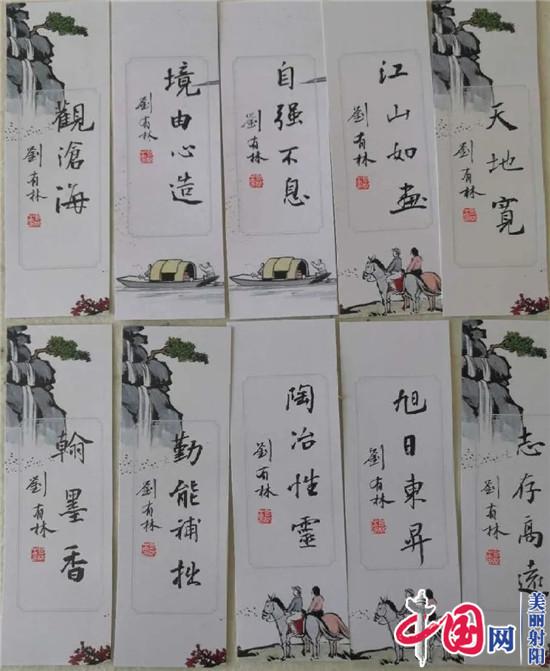 觀滄海
劉有林
境由心造
劉有林
自强不息
劉有林
江山如畫
劉有林
天地寬
劉有林
翰墨香
劉有林
勤能補拙
劉有林
陶冶性靈
劉有林
旭日東昇
劉有林
志存高遠
劉有林
中国网
美丽射阳